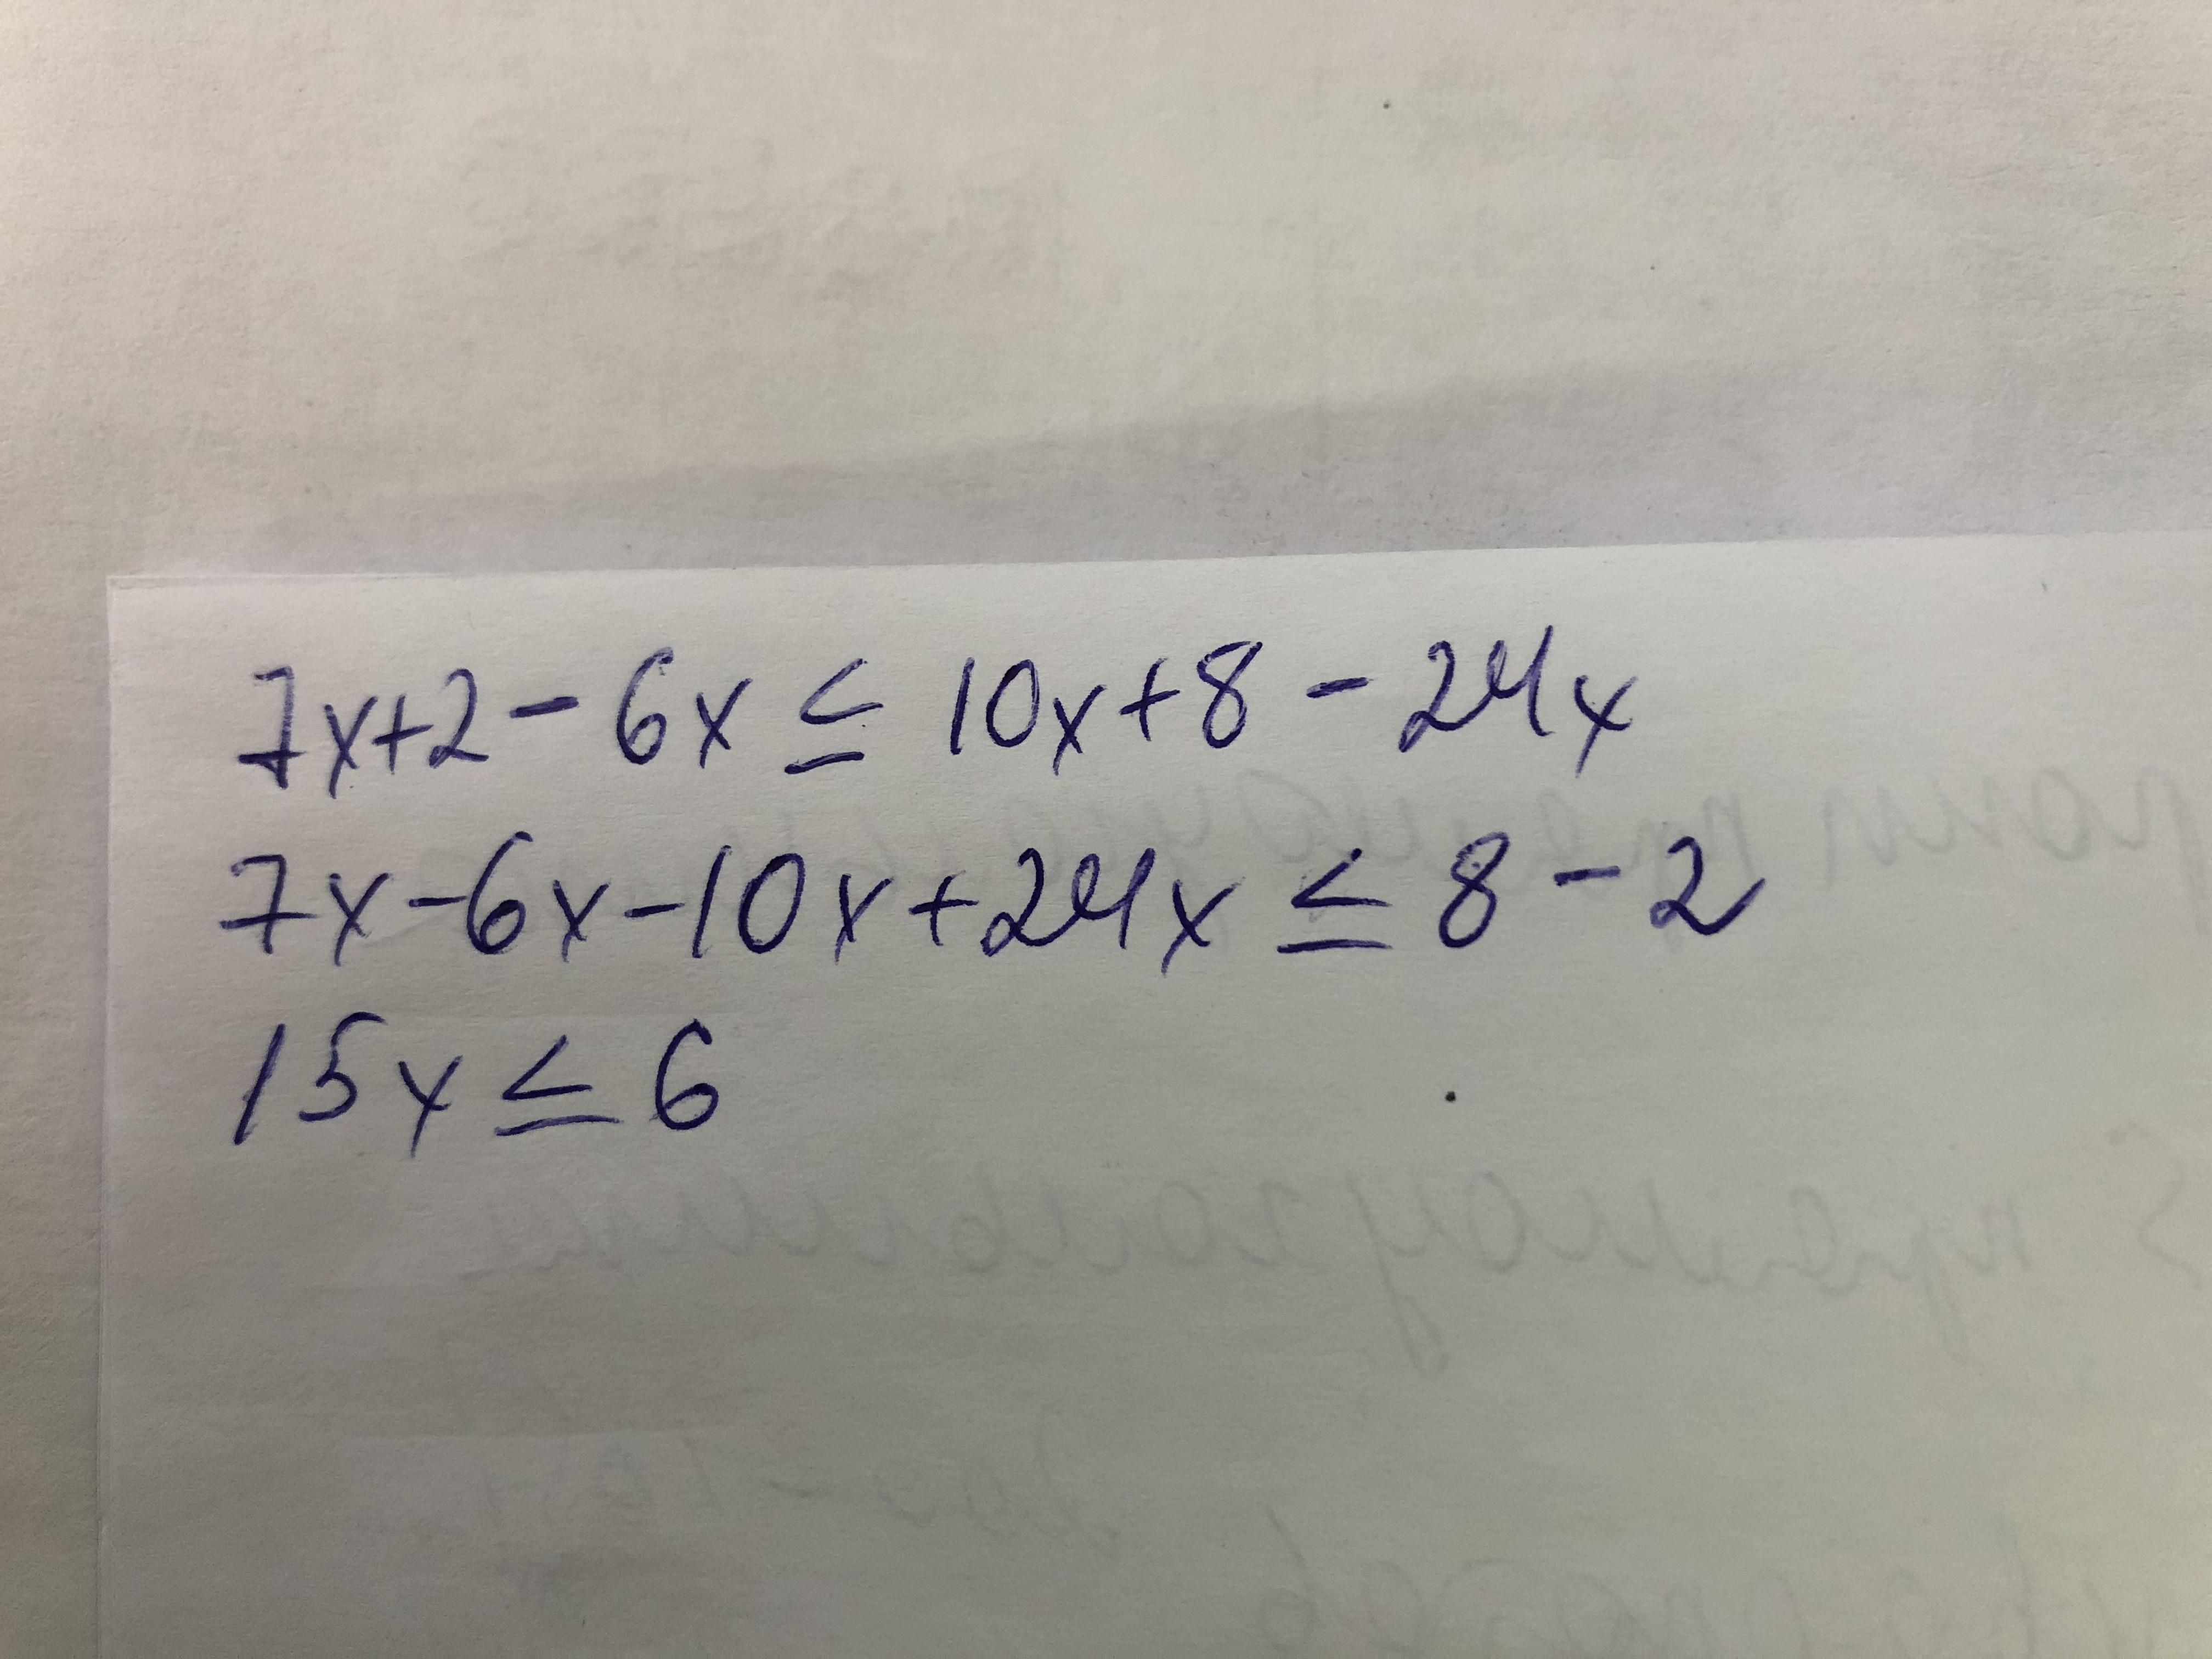 7x+2-6x≤10x+8-24x
7x-6x-10x+24x≤8-2
15x≤6